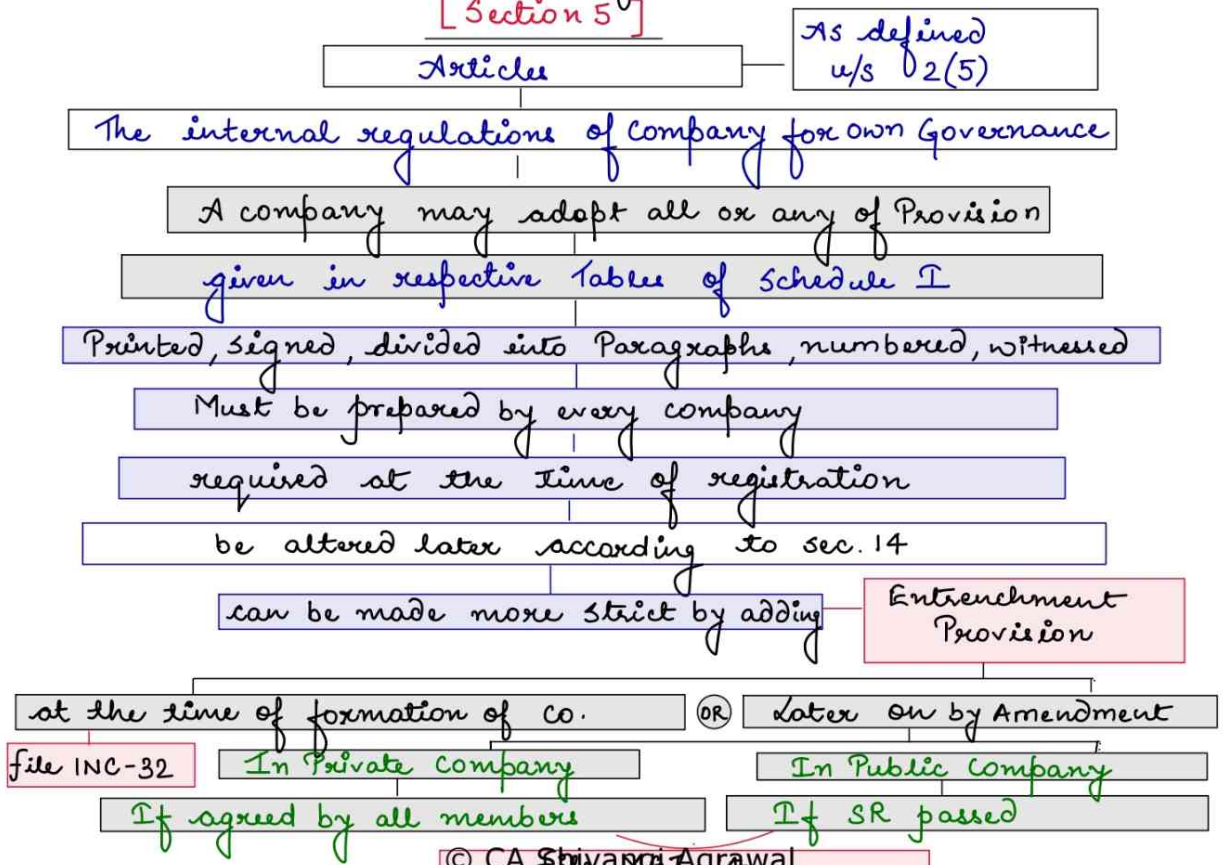 [Section 5]
Articles
As defined
u/s 2(5)
The internal regulations of company for own Governance
A company may adopt all or any of Provision
given in respective Tables of Schedule I
Printed, signed, divided into Paragraphs, numbered, witnessed
Must be prepared by every company
required at the time of registration
be altered later according to sec. 14
can be made more strict by adding
Entrenchment
Provision
at the time of formation of co.
OR
Later on by Amendment
file INC-32
In Private Company
In Public Company
If agreed by all members
If SR passed
© CA Shivangi Agrawal